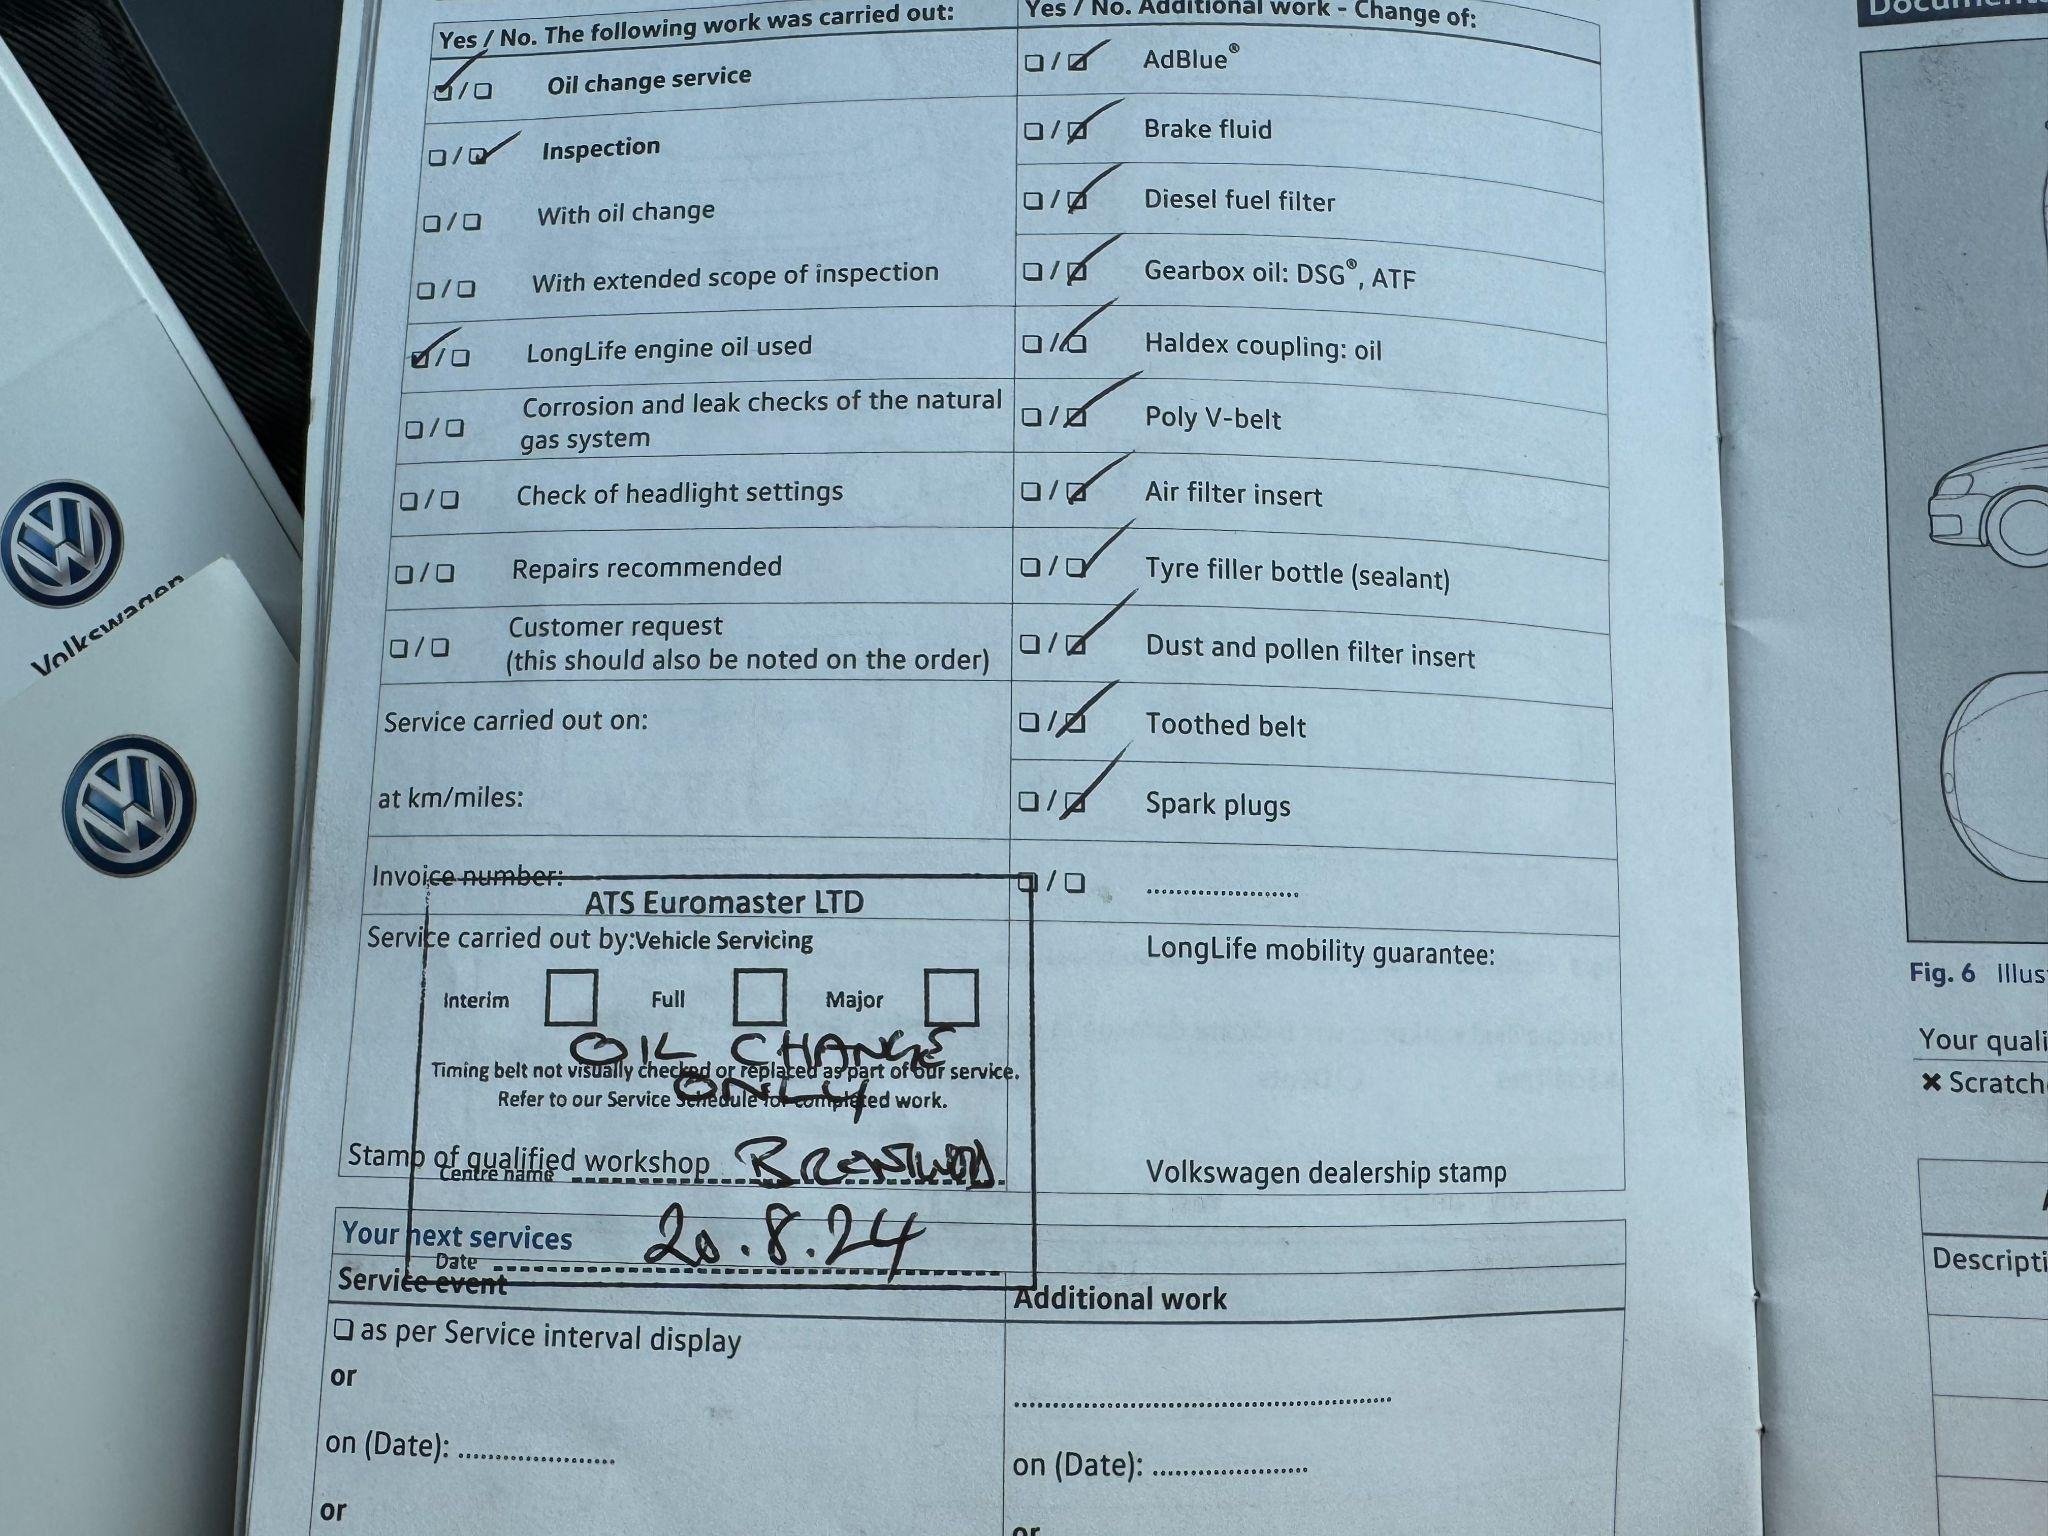 Yes / No. The following work was carried out:
Oil change service
Inspection
With oil change
With extended scope of inspection
LongLife engine oil used
Corrosion and leak checks of the natural
gas system
Check of headlight settings
Repairs recommended
Customer request
(this should also be noted on the order)
Service carried out on:
at km/miles:
Invoice number:
Service carried out by:
Stamp of qualified workshop
ATS Euromaster LTD
Vehicle Servicing
Interim Full Major
OIL CHANGE
ONLY
Timing belt not visually checked or replaced as part of our service.
Refer to our Service Schedule for completed work.
Centre name BRENTWOOD
Date 20.8.24
Yes / No. Additional work - Change of:
AdBlue®
Brake fluid
Diesel fuel filter
Gearbox oil: DSG®, ATF
Haldex coupling: oil
Poly V-belt
Air filter insert
Tyre filler bottle (sealant)
Dust and pollen filter insert
Toothed belt
Spark plugs
LongLife mobility guarantee:
Volkswagen dealership stamp
Your next services
Service event
as per Service interval display
or
on (Date):
or
Additional work
on (Date):
or
Volkswagen
Fig. 6 Illus
Your quali
✖ Scratch
Descripti